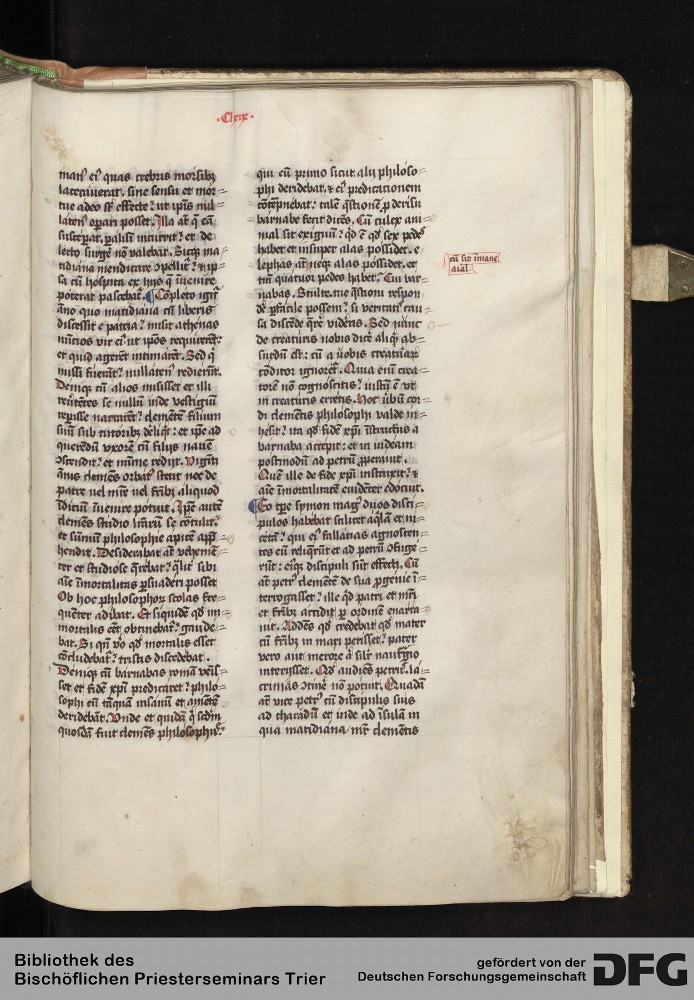 ·Clxix·
man⁹ ei⁹ quas crebris morsibꝫ
laceraverat. sine sensu et mor-
tue adeo st̄ effecte? ut ip̄is nul-
laten⁹ op̄ari posset. Illa at̄ q̄ eā
susceꝑat. paralisī incurrit? et de
lecto surgē nō valebat. Sicqꝫ ma-
tidiana mendicare ꝯpellit᷑? ⁊ ip-
sa cū hospita ex hijs q̄ īvenire
poterat pascebat᷑. Completo igit᷑
āno quo matidiana cū liberis
discessit e patria? misit athenas
nūcios vir ei⁹ ut ip̄os requireret᷑
et quid agerēt intimarēt. Sed q̄
missi fuerāt? nullaten⁹ redierūt.
Deniqꝫ cū alios misisset et illi
rev̄tētes se nullū inde vestigiū
rep̄isse narrarēt? clemētē filium
suū sub tutoribꝫ deliq̄t: et ip̄e ad
querēdū uxorē cū filijs navē
ꝯscendit? et mīme redijt. Viginti
ānis clemēs orbat⁹ stetit nec de
patre vel mr̄e vel fr̄ibꝫ aliquod
īdiciū īvenire potuit. Ip̄e autē
clemēs studio lr̄arū se cōtulit?
et sūmū philosophie apicē app̄-
hendit. Desiderabat at̄ vehemē-
ter et studiose q̄rebat? q̄lit᷑ sibi
aīe īmortalitas ꝑsuaderi posset
Ob hoc philosophorꝫ scolas fre-
quēter adibat. Et siquidē qd̄ im-
mortalis eēt obtinebat᷑? gaude-
bat. Si qn̄ vo qd̄ mortalis esset
cōcludebat᷑? tristis discedebat.
Deniqꝫ cū barnabas romā venis-
set et fidē xp̄i predicaret? philo-
sophi eū tāquā insanū et amētē
deridebāt. Unde et quidā q̄ scd̄m
quosdā fuit clemēs philosophus?
qui eū primo sicut alij philoso-
phi deridebat. ⁊ ei⁹ predicationem
cōtēpnebat: talē q̄stionē ꝓ derisu
barnabe fecit dicēs. Cū culex ani-
mal sit exiguū? qd̄ ē qd̄ sex pedes
habet et insuper alas possidet. e-
lephas at̄ neqꝫ alas possidet. et
tm̄ quatuor pedes habet? Cui bar-
nabas. Stulte. tue q̄stioni respon-
dē ꝑfacile possem? si veritati cau-
sa discēde q̄rē videris. Sed nunc
de creaturis nobis dicē aliq̄ ab-
surdū est: cū a vobis creaturarꝫ
cōditor ignoret᷑. Quia enī crea-
torē nō cognoscitis? iustū ē ut
in creaturis erretis. Hoc v̄bū cor-
di clemētis philosophi valde in-
hesit? ita qd̄ fidē xp̄i īstructus a
barnaba accepit: et in iudeam
postmodū ad petrū ꝓperavit.
Quē ille de fide xp̄i instruxit? ⁊
aīe īmortalitatē evidēter edocuit.
Eo tꝑe symon mag⁹ duos disci-
pulos habebat scilicet aq̄lā et ni-
cetā? qui ei⁹ fallacias agnoscen-
tes eū reliq̄rūt et ad petrū ꝯfuge-
rūt: eiꝰqꝫ discipuli sūt effecti. Cū
at̄ petr⁹ clemētē de sua ꝓgenie ī-
terrogasset? ille qd̄ patri et mr̄i
et fr̄ibꝫ accidit ꝑ ordinē enarra-
vit. Addēs qd̄ credebat qd̄ mater
cū fr̄ibꝫ in mari perisset? pater
vero aut merore a᷑ sil᷑r naufgio
interijsset. Qd̄ audiēs petrus. la-
crimas ꝯtinē nō potuit. Quadā
at̄ vice petr⁹ cū discipulis suis
ad tharadū et inde ad īsulā in
qua matidiana / mr̄ clemētis
cū sit īmane
aīal
Bibliothek des
Bischöflichen Priesterseminars Trier
gefördert von der
Deutschen Forschungsgemeinschaft
DFG